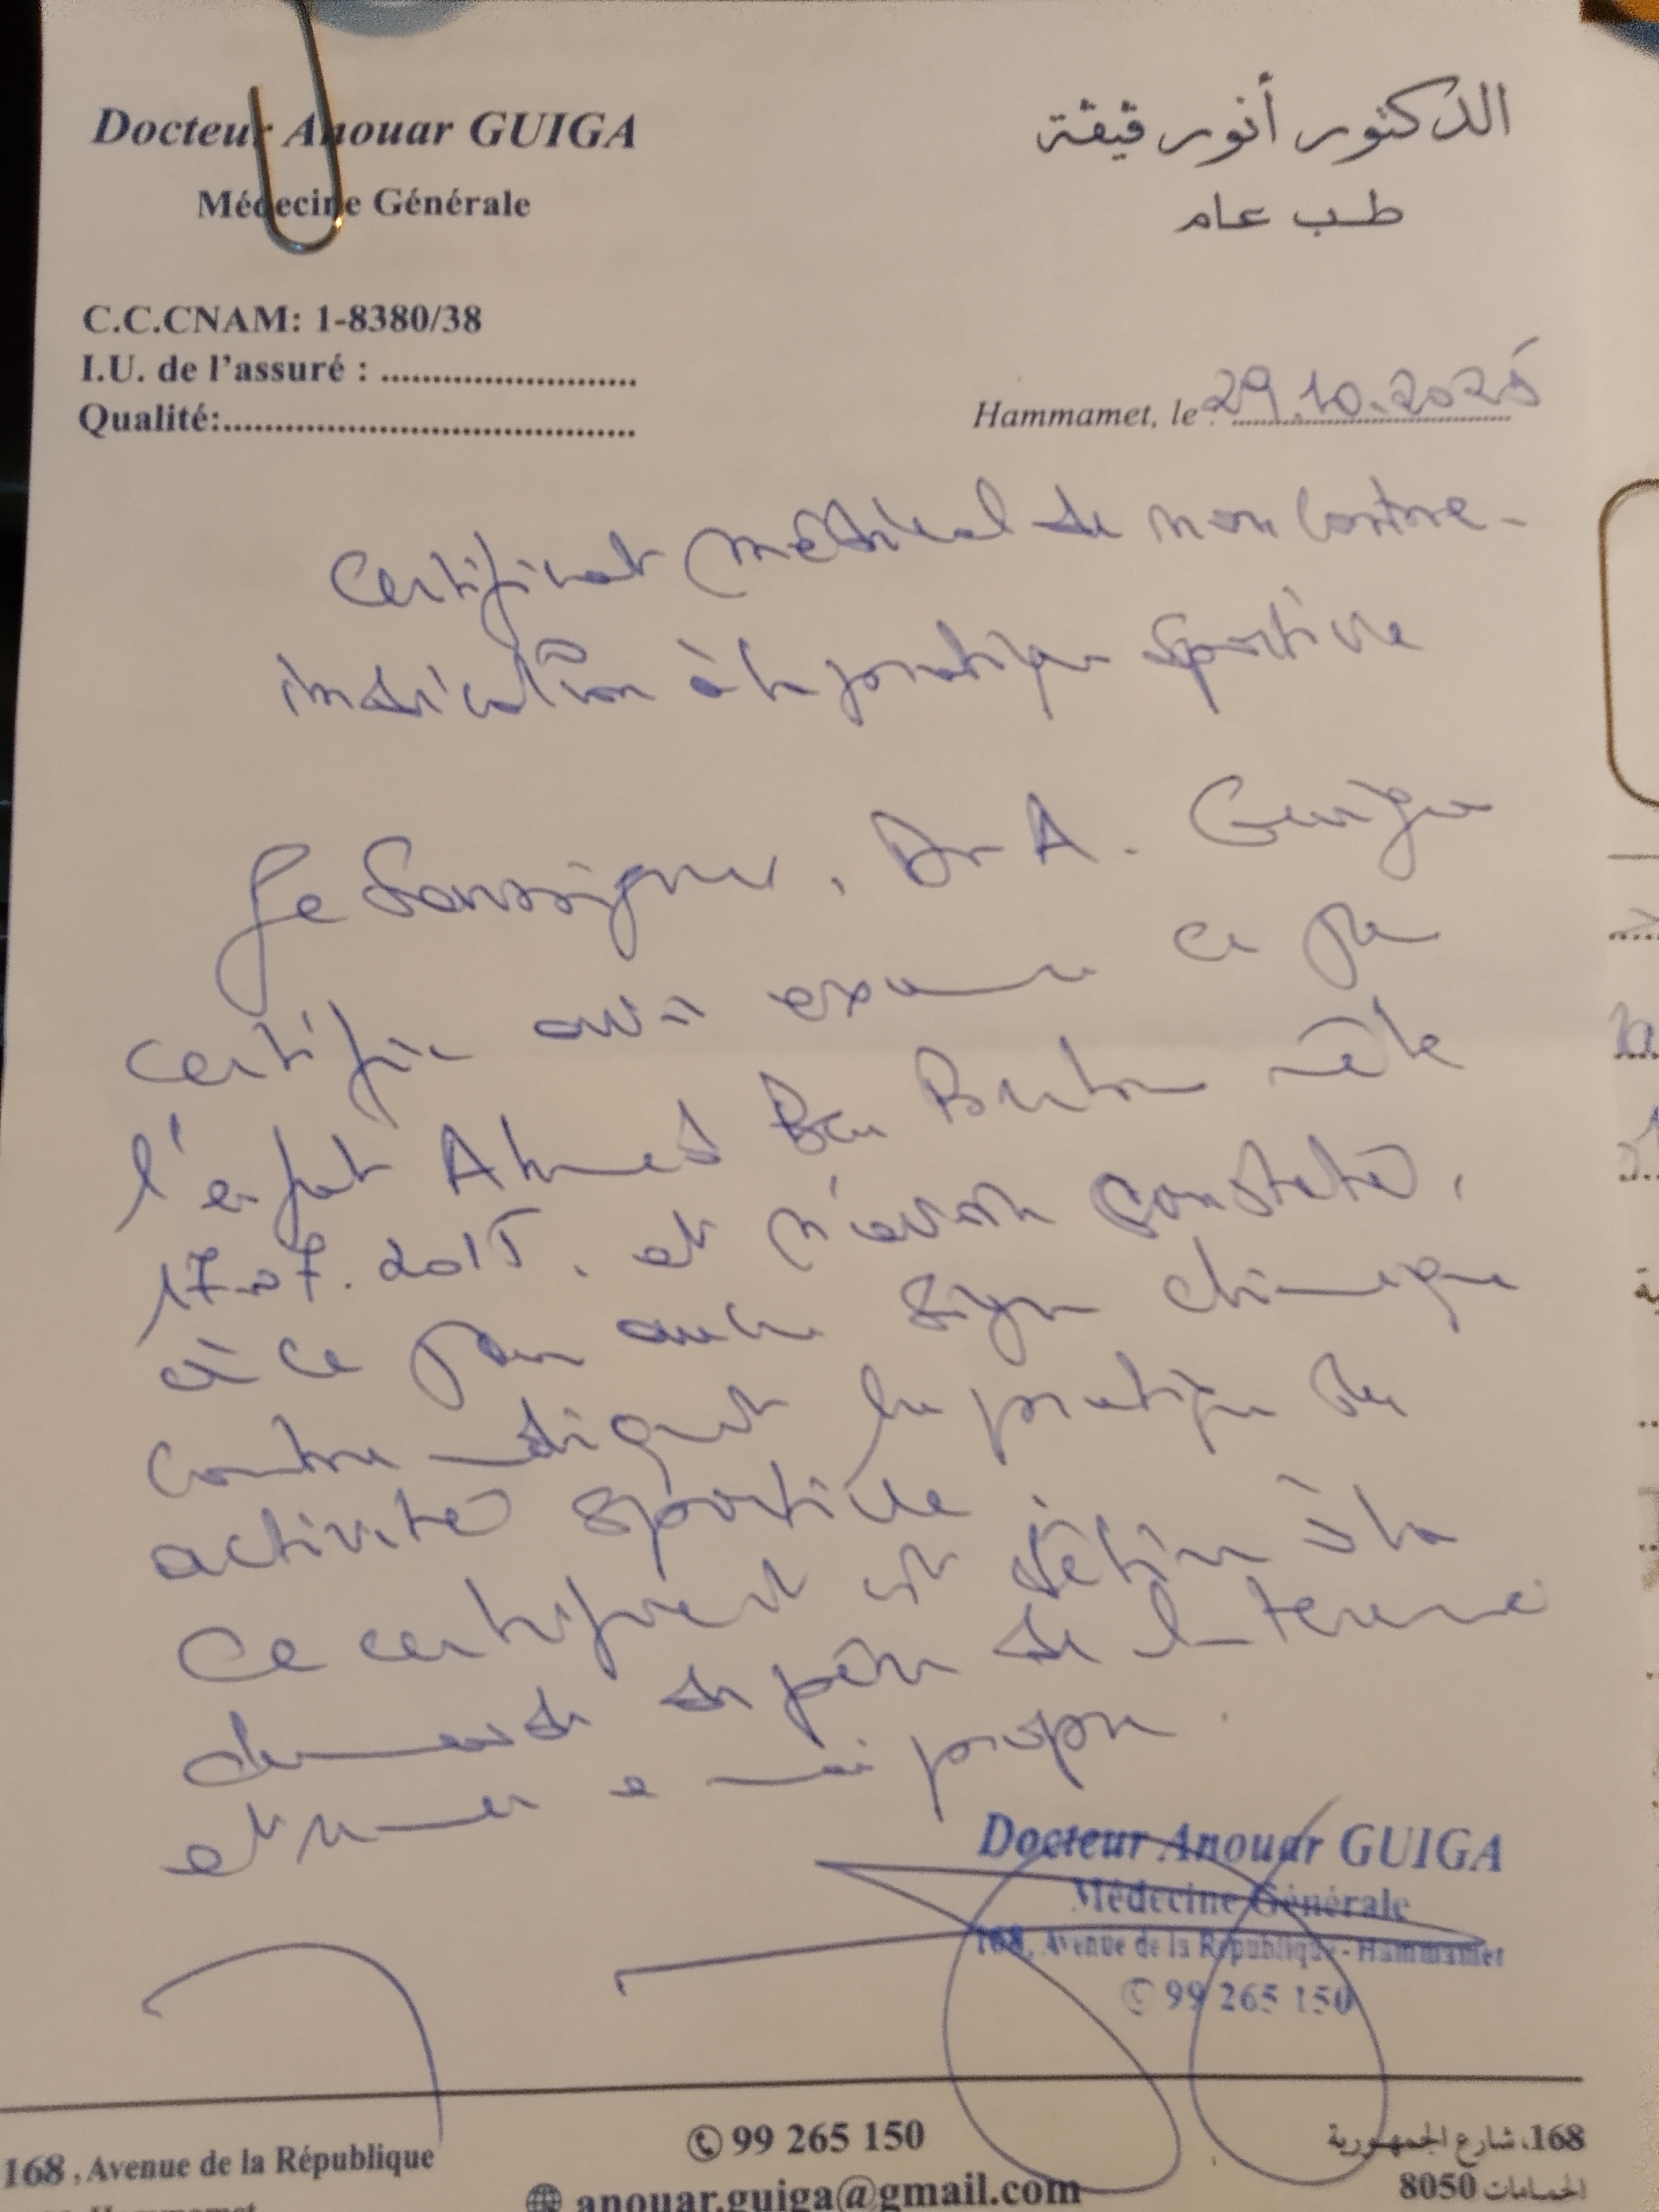 Docteur Anouar GUIGA
Médecine Générale
الدكتور أنور قيقة
طب عام
C.C.CNAM: 1-8380/38
I.U. de l'assuré : ..............................
Qualité:..................................................
Hammamet, le 29.10.2025
Certificat médical de non contre-
indication à la pratique sportive
Je soussigné, Dr A. Guiga
certifie avoir examiné ce jour
l'enfant Ahmed Ben né le
17.07.2015. et n'avoir constaté,
à ce jour aucun signe clinique
contre indiquant la pratique
activité sportive.
Ce certificat est délivré à la
demande du père de l'intéressé
et remis en main propre.
Docteur Anouar GUIGA
Médecine Générale
168, Avenue de la République - Hammamet
99 265 150
168, Avenue de la République
99 265 150
168، شارع الجمهورية
Hammamet
anouar.guiga@gmail.com
الحمامات 8050